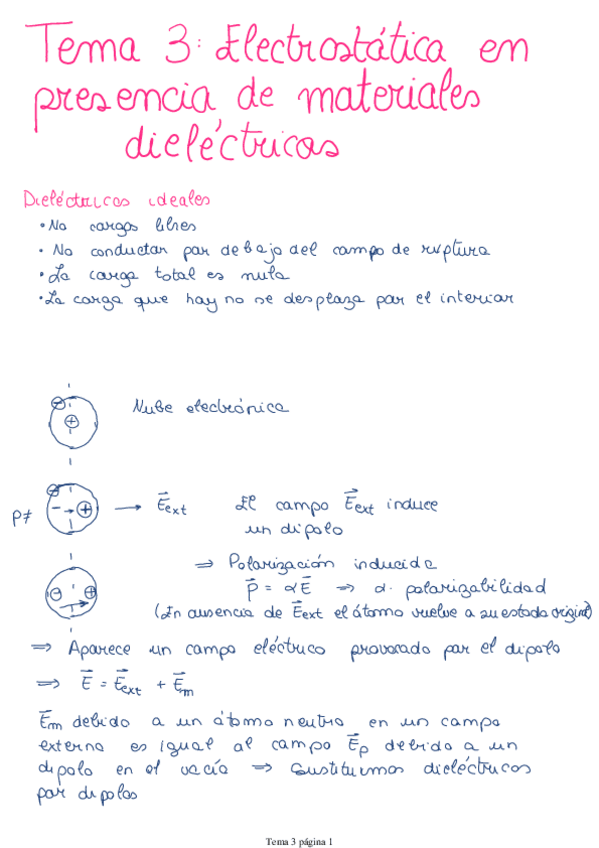 Tema 3: Electrostática en
presencia de materiales
dieléctricos
Dieléctricos ideales
• No cargas libres
• No conductar por debajo del campo de ruptura
• La carga total es nula
• La carga que hay no se desplaza por el interior
⊖
⊕
Nube electrónica
⊖
− → ⊕
p≠
→ E⃗ext
El campo E⃗ext induce
un dipolo
⇒ Polarización inducida
⊖ ⊕
p⃗ = αE⃗ ⇒ α· polarizabilidad
(En ausencia de E⃗ext el átomo vuelve a su estado original)
⇒ Aparece un campo eléctrico provocado por el dipolo
⇒ E⃗ = E⃗ext + E⃗m
E⃗m debido a un átomo neutro en un campo
externo es igual al campo E⃗p debido a un
dipolo en el vacío ⇒ Sustituimos dieléctricos
por dipolos
Tema 3 página 1